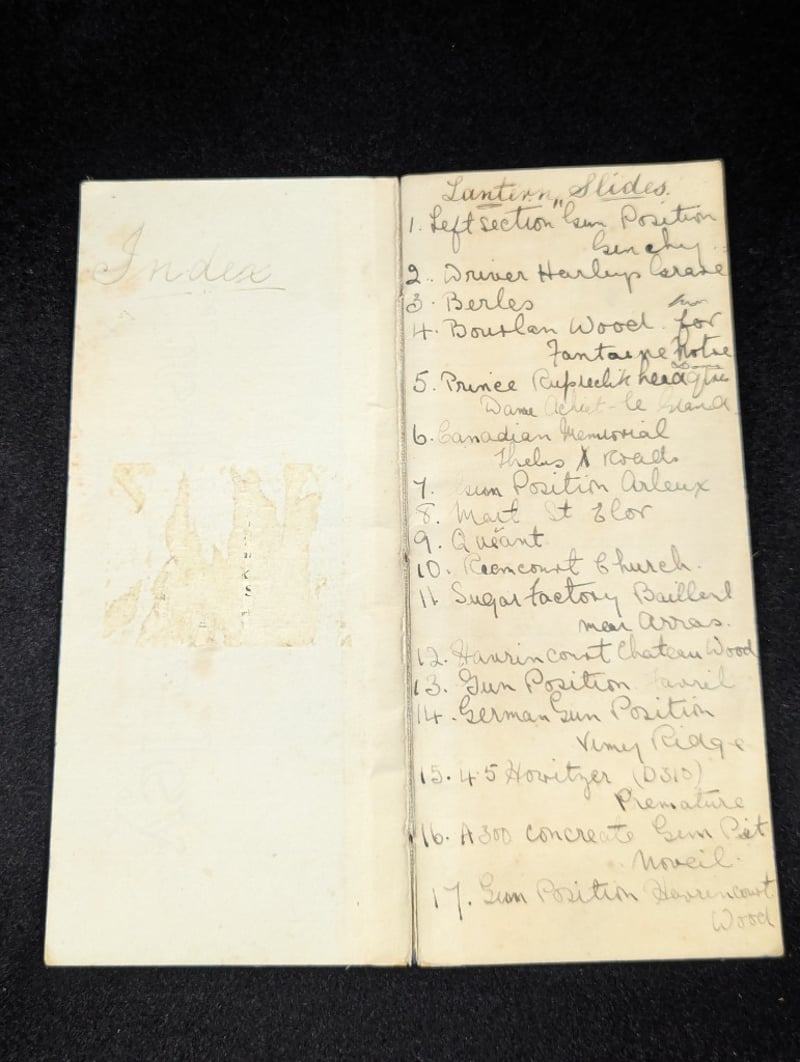 Index
Lantern Slides.
1. Left section Gun Position
Ginchy
2. Driver Harleys Grave
3. Berles
4. Bourlan Wood. for
Fantaine Notre
5. Prince Ruprecht headqtrs
Dame Achiet-le Grand
6. Canadian Memorial
Thelus X Roads
7. Gun Position Arleux
8. Mait St Elor
9. Quéant
10. Riencourt Church.
11 Sugar factory Baillenl
near Arras.
12. Havrincourt Chateau Wood
13. Gun Position
14. German Gun Position
Vimy Ridge
15. 4.5 Howitzer (D310)
Premature
16. A300 concreate Gun Pit
Noveil.
17. Gun Position Havrincourt
Wood